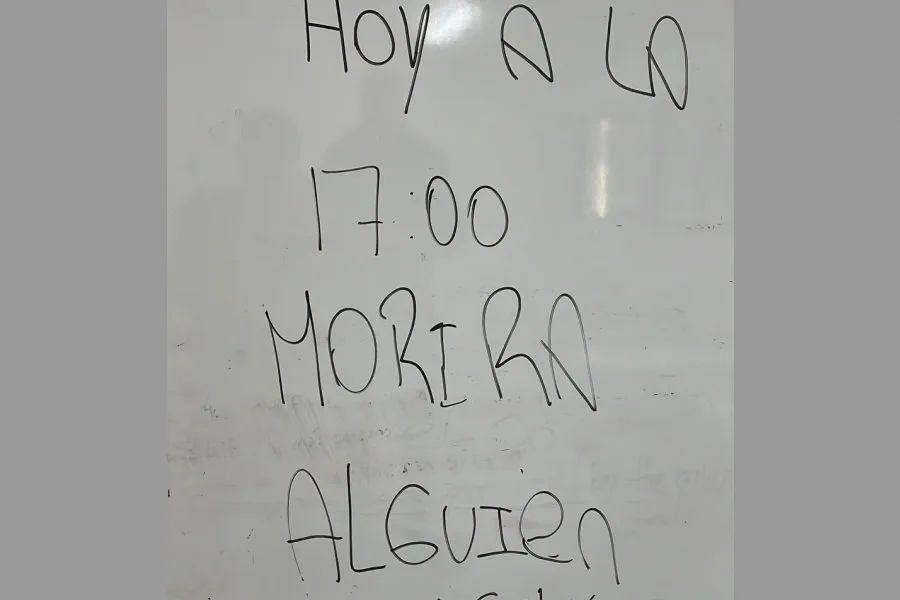 HOY A LA
17:00
MORIRA
ALGUIEn